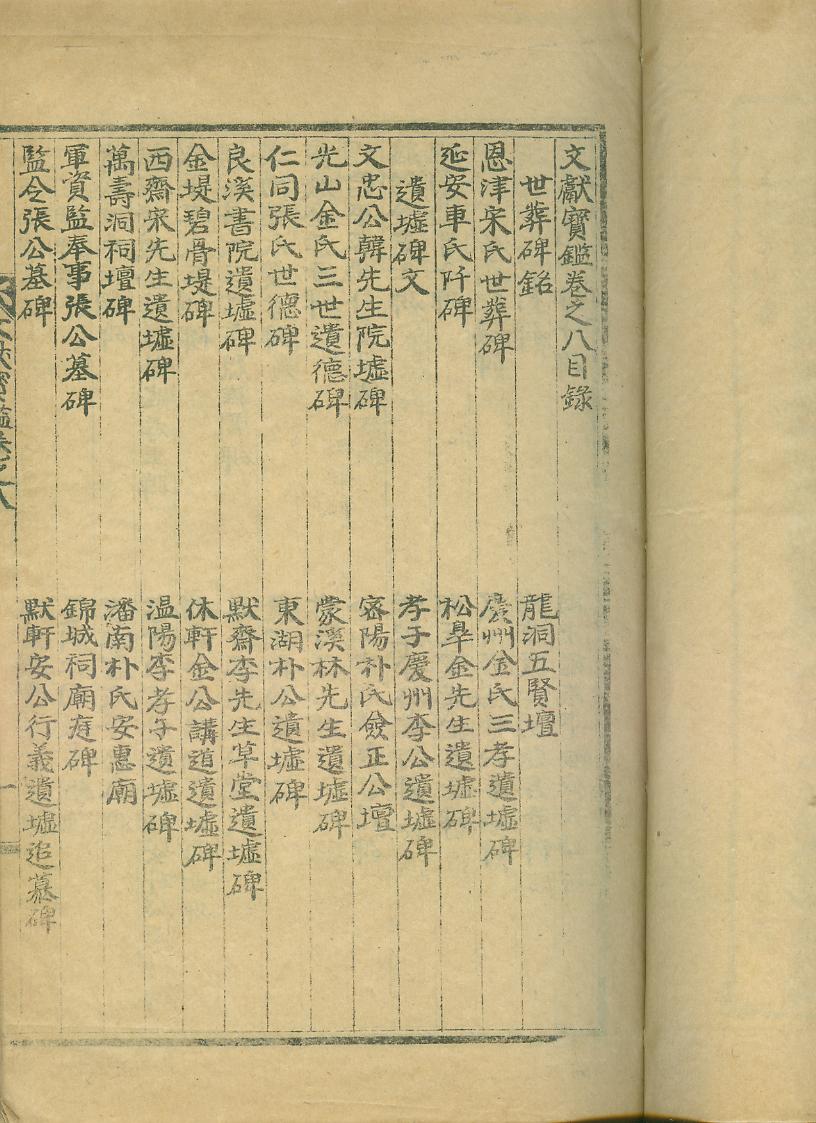 文獻寶鑑卷之八目錄
世葬碑銘
龍洞五賢壇
恩津宋氏世葬碑
慶州金氏三孝遺墟碑
延安車氏阡碑
松皐金先生遺墟碑
遺墟碑文
孝子慶州李公遺墟碑
文忠公韓先生院墟碑
密陽朴氏僉正公壇
光山金氏三世遺德碑
蒙溪林先生遺墟碑
仁同張氏世德碑
東湖朴公遺墟碑
良溪書院遺墟碑
默齋李先生草堂遺墟碑
金堤碧骨堤碑
休軒金公講道遺墟碑
西齋宋先生遺墟碑
温陽李孝子遺墟碑
萬壽洞祠壇碑
潘南朴氏安惠廟
軍資監奉事張公墓碑
錦城祠廟庭碑
監令張公墓碑
默軒安公行義遺墟追慕碑
文獻寶鑑卷之八
一